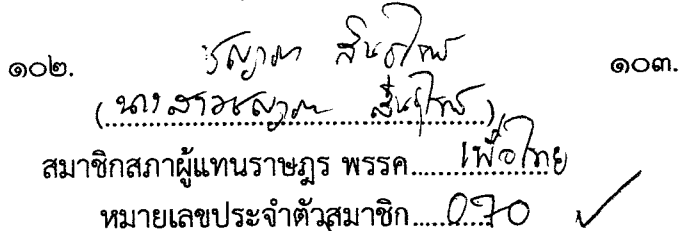 ๑๐๒. ชญาภา สินธุไพร ๑๐๓.
(นางสาวชญาภา สินธุไพร)
สมาชิกสภาผู้แทนราษฎร พรรค เพื่อไทย
หมายเลขประจำตัวสมาชิก 070 ✓